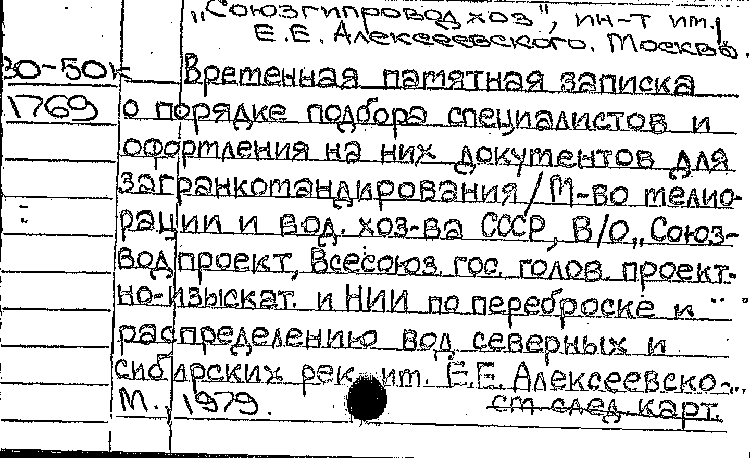 „Союзгипроводхоз", ин-т им.
Е.Е. Алексеевского. Москва.
80-50к Временная памятная записка
1769 о порядке подбора специалистов и
оформления на них документов для
загранкомандирования/М-во мелио-
рации и вод. хоз-ва СССР, В/О „Союз-
водпроект, Всесоюз. гос. голов. проект-
но-изыскат. и НИИ по переброске и
распределению вод северных и
сибирских рек им. Е.Е. Алексеевско-
М., 1979. см след. карт.